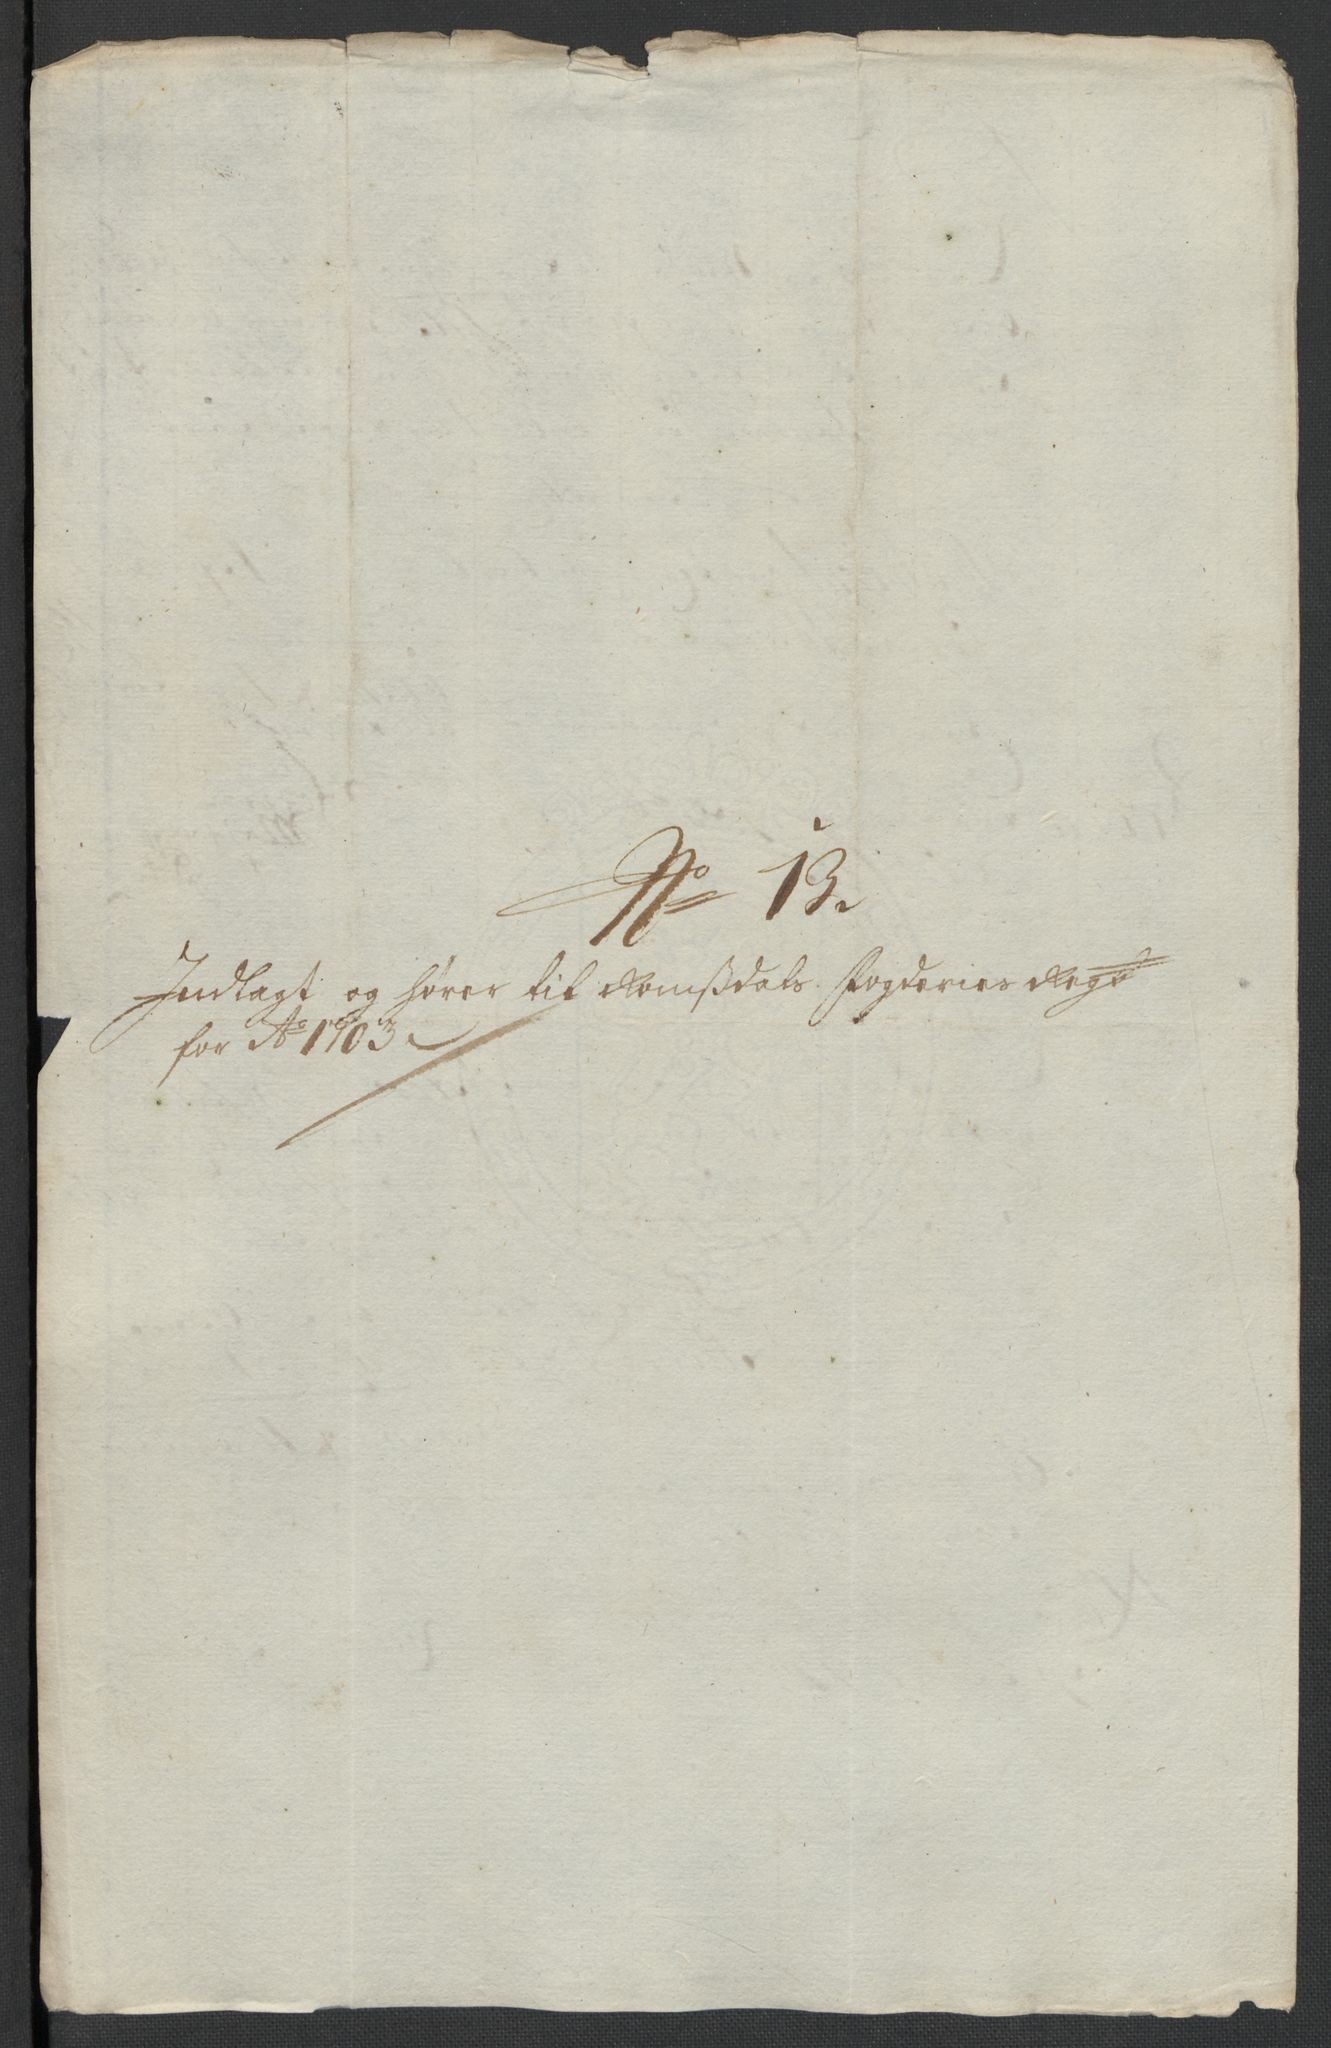 No 13.
Indlagt og hører til Romßdals Fogderies Regb
for Ao 1703.